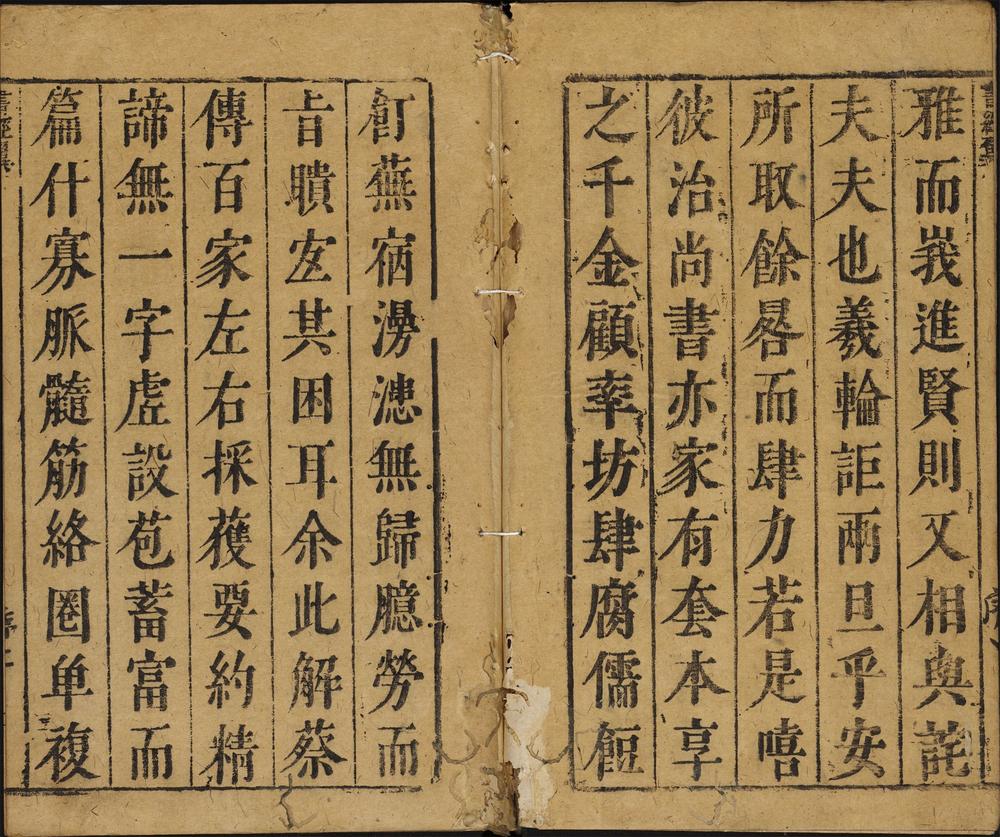 雅而峩進賢則又相與詫
夫夫也羲輪詎兩旦乎安
所取餘晷而肆力若是嘻
彼治尚書亦家有套本享
之千金顧率坊肆腐儒飣
飣蕪宿澷漶無歸臆勞而
旨聵宐其困耳余此解蔡
傳百家左右採蒦要約精
諦無一字虛設苞蓄富而
篇什寡脈髓筋絡圈单複